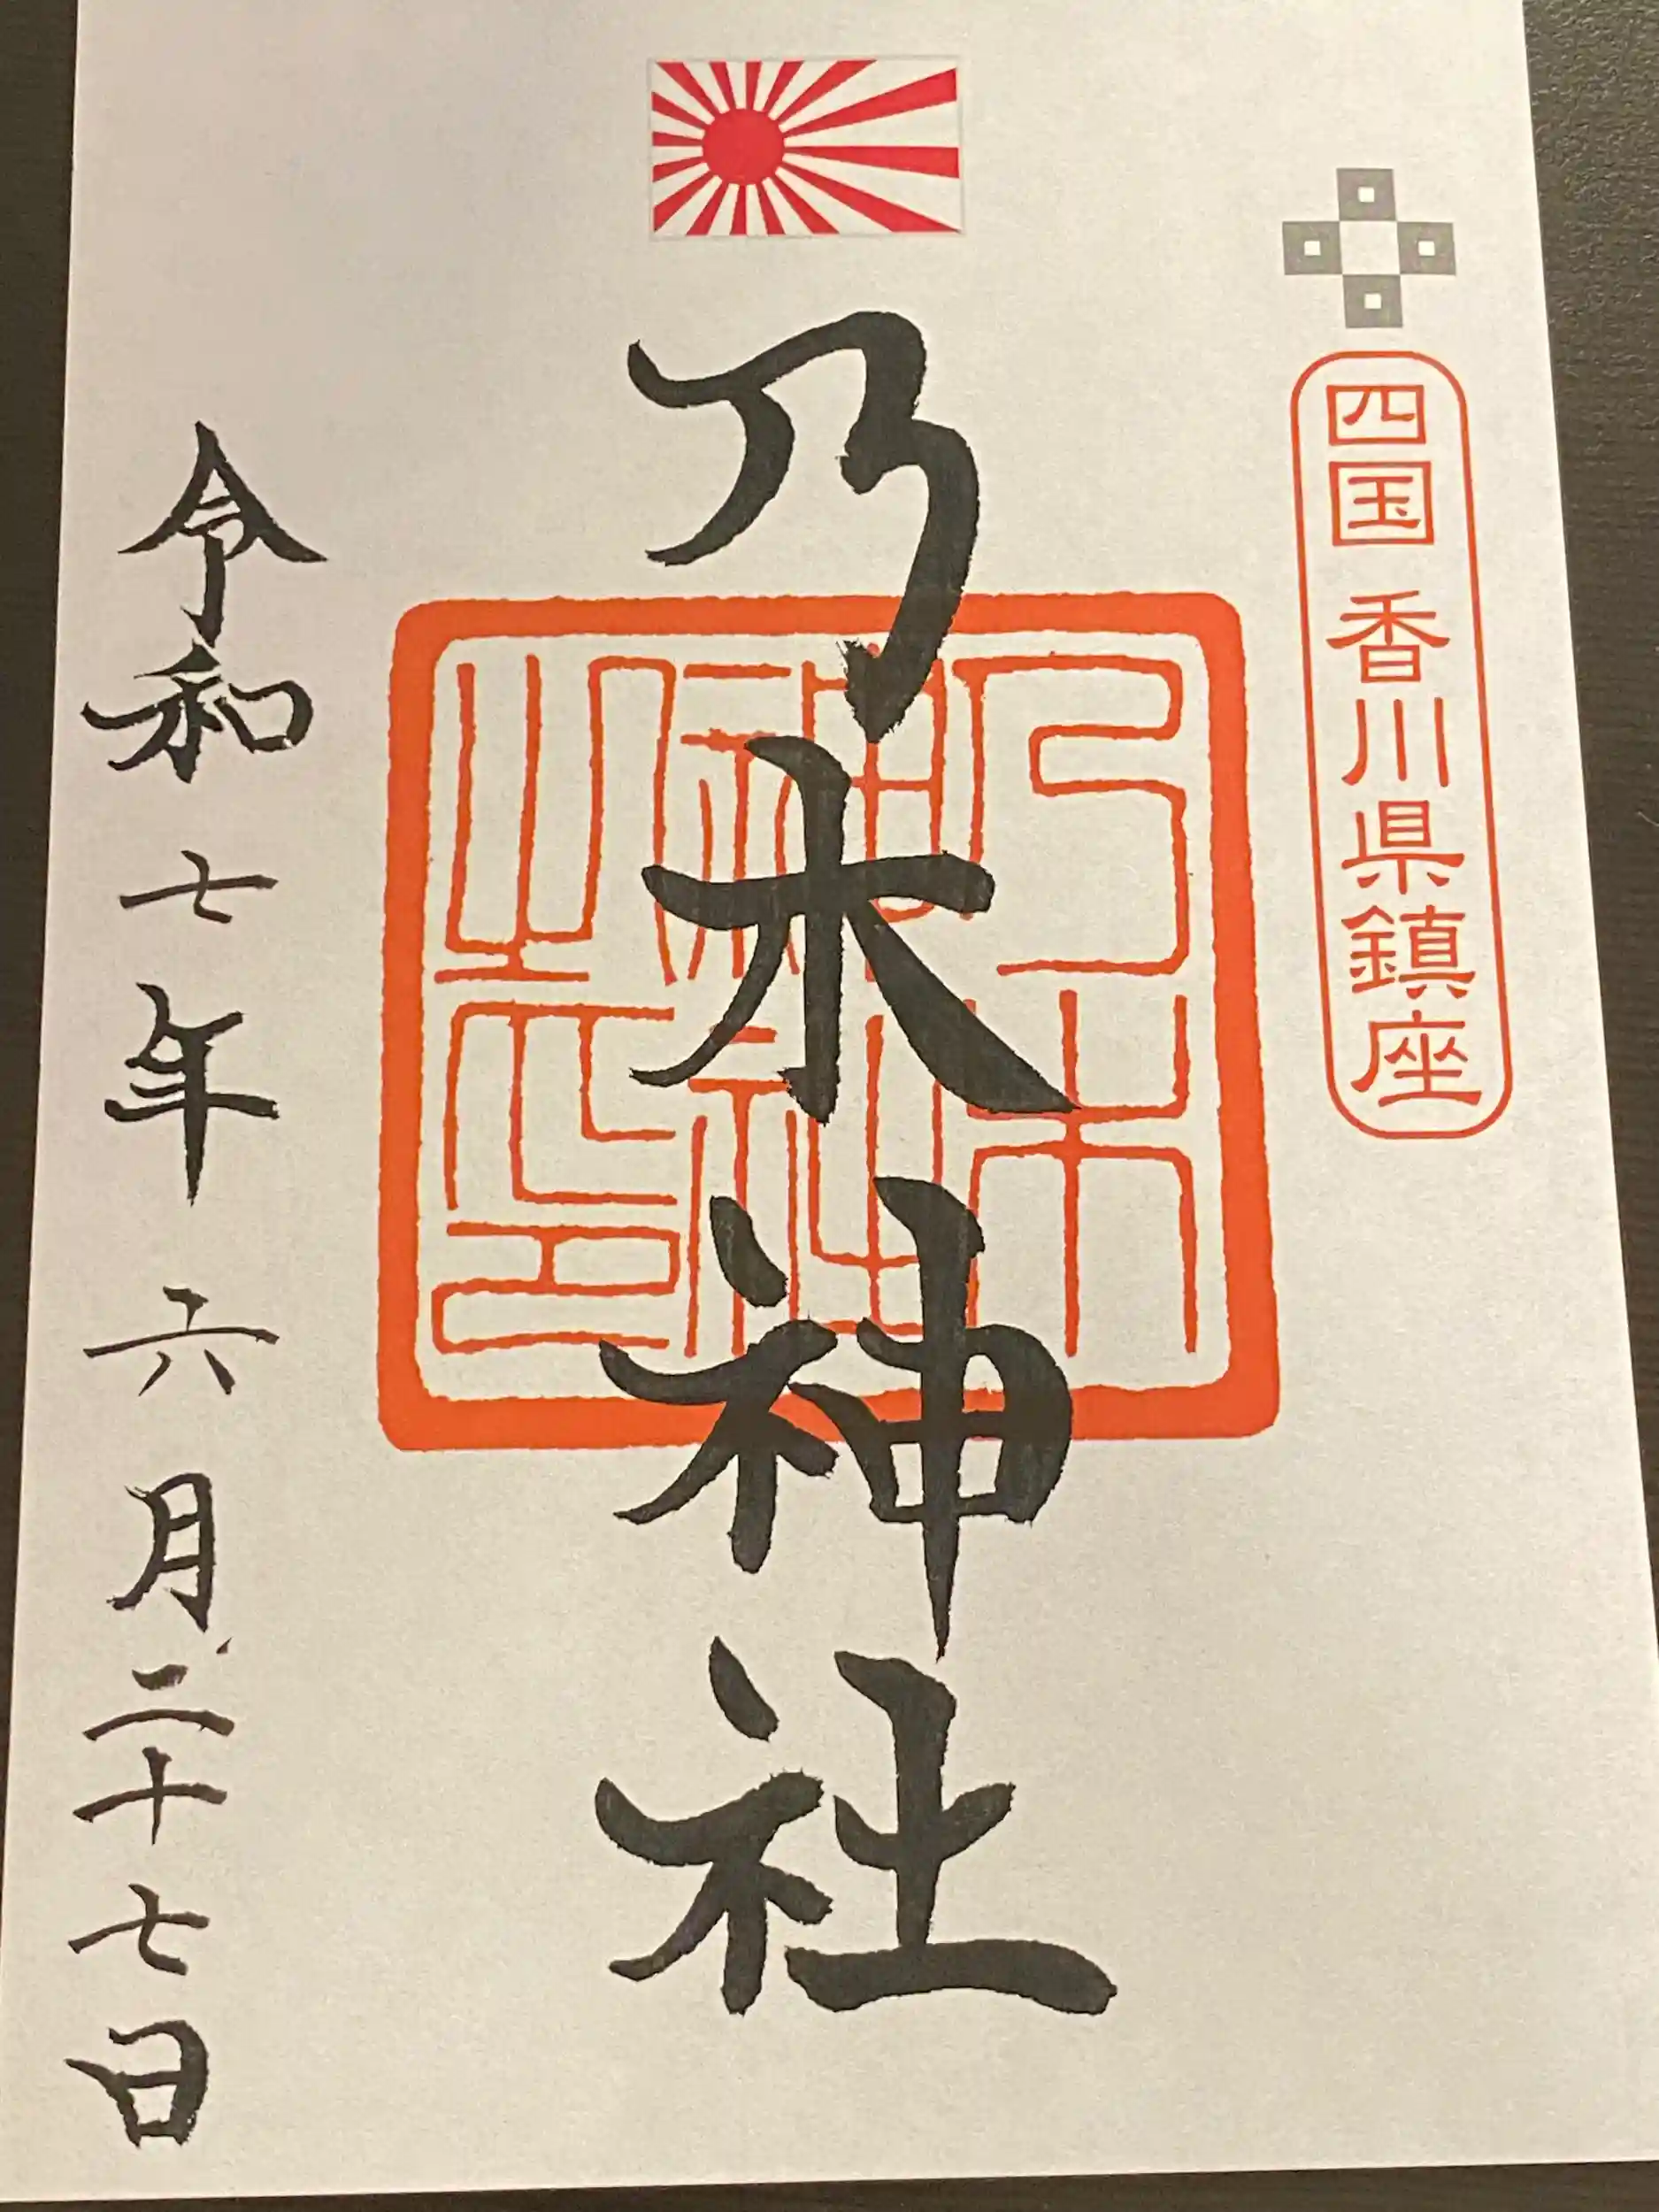 四国 香川県鎮座
乃木神社
乃木神社之印
令和七年六月二十七日